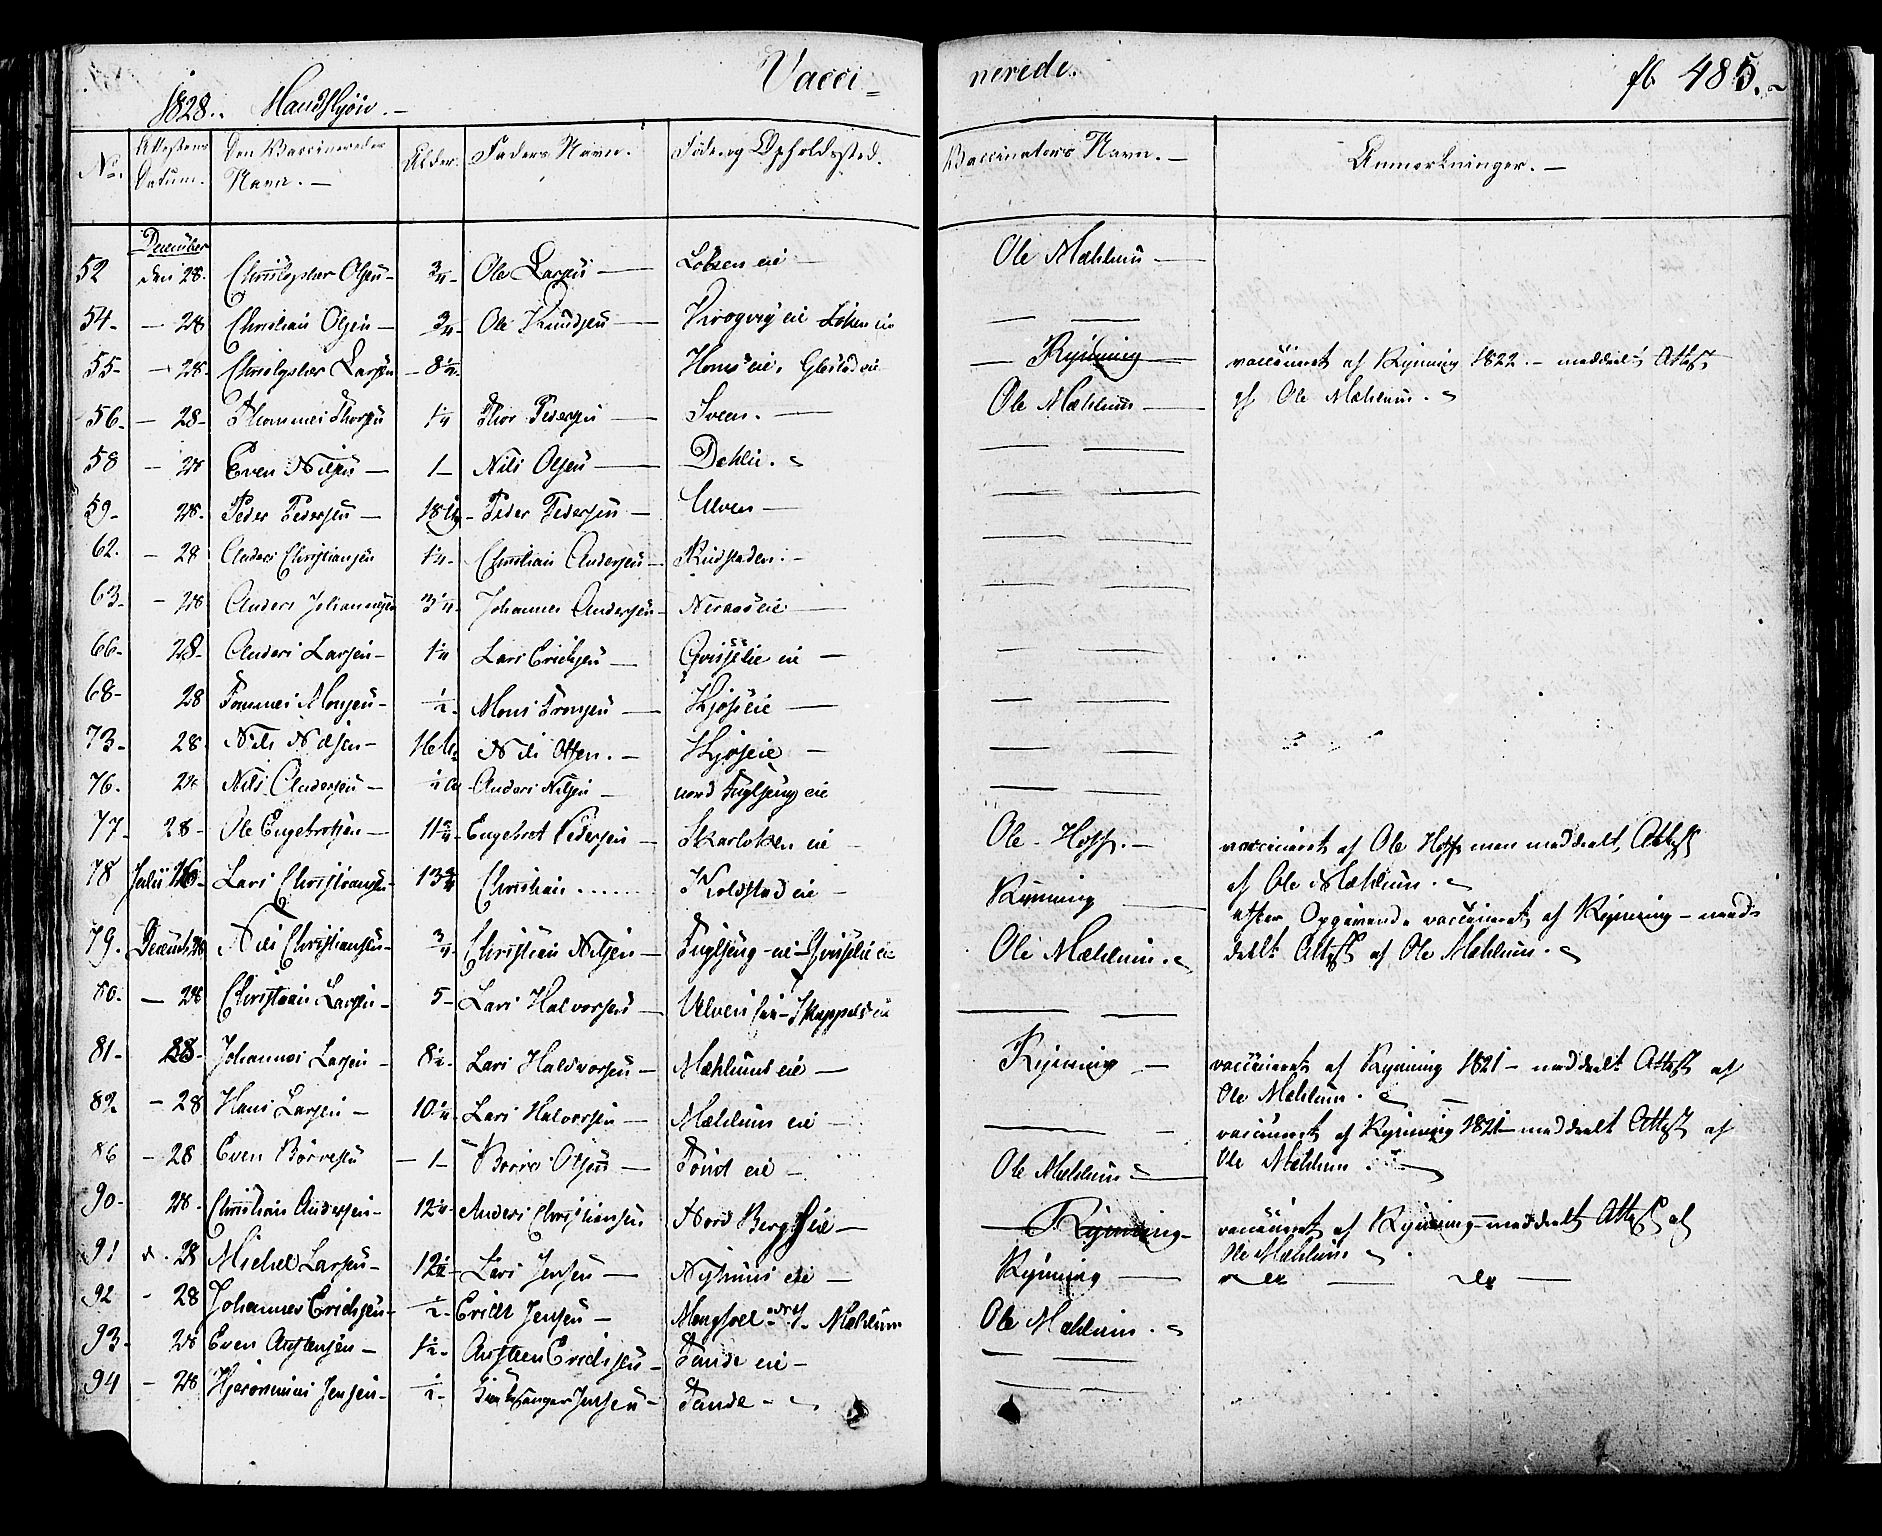 Vacci= nerede. fb 485.
1828. Mandkjøn.
No. Attestens Datum. Den Vaccineredes Navn. Alder. Faders Navn. Føde og Opholdssted. Vaccinators Navn. Anmerkninger.
December
52 den 28. Christopher Olsen 3/4 Ole Larsen Løken eie Ole Mæhlum
54. 28 Christian Olsen 3/4 Ole Knudsen Krogvig eie Løken eie
55. 28. Christopher Larsen 8 1/2 Homs eie, Glestad eie Kynning vaccineret af Kynning 1822. meddelt Attest
af Ole Mæhlum.
56. 28 Thommes Thorsen 1/4 Thor Pedersen Sveen. Ole Mæhlum
58 28 Even Nilsen 1 Nils Olsen Dehli.
59. 28. Peder Pedersen 18 Ug. Peder Pedersen Ulven
62. 28 Anders Christiansen 1/4. Christian Andersen Rudstaden.
63. 28 Anders Johannesen 3 1/4. Johannes Andersen Neraas eie
66. 28. Anders Larsen 1/4 Lars Erichsen Qvislie eie
68. 28 Tommes Monsen 1/2. Mons Tronsen Kjøs eie
73. 28. Nils Nilsen 16 U. Nils Olsen. Kjøs eie
76. 28 Nils Andersen Anders Nilsen nord Fuglseng eie
77. 28 Ole Engebretsen 11 3/4 Engebret Pedersen Skarløken eie Ole Hoff. vaccineret af Ole Hoff men meddelt Attest
af Ole Mæhlum.
78 Julii 26. Lars Christiansen 13 3/4 Christian ...... Koldstad eie Kynning efter Opgivende vaccineret af Kynning - med=
deelt Attest af Ole Mæhlum.
79. Decemb. 28 Nils Christiansen 3/4 Christian Nilsen Fuglseng eie Qvislie eie Ole Mæhlum.
80. 28 Christian Larsen 5 Lars Halvorsen Ulven eie Skappels eie
81. 28. Johannes Larsen 8 1/2. Lars Haldvorsen Mæhlums eie Kynning vaccineret af Kynning 1821 meddeelt Attest af
Ole Mæhlum.
82. 28 Hans Larsen 10 1/4. Lars Halvorsen Mæhlum eie vaccineret af Kynning 1821 meddeelt Attest af
Ole Mæhlum
86 28 Even Børresen 1 Børre Olsen eie Ole Mæhlum
90. 28. Christian Andersen 12 1/4. Anders Christiansen Nord Berg eie Kynning vaccineret af Kynning meddeelt Attest af
Ole Mæhlum
91 28 Michel Larsen 12 1/2 Lars Jensen Nyhuus eie Kynning
92 28 Johannes Erichsen 1/2. Erich Jensen Mengshoel Mæhlum Ole Mæhlum.
93. 28 Even Austensen 1 1/2. Austen Erichsen Tande eie
94 28 Hjeronimus Jensen 1/2. Jensen Tande